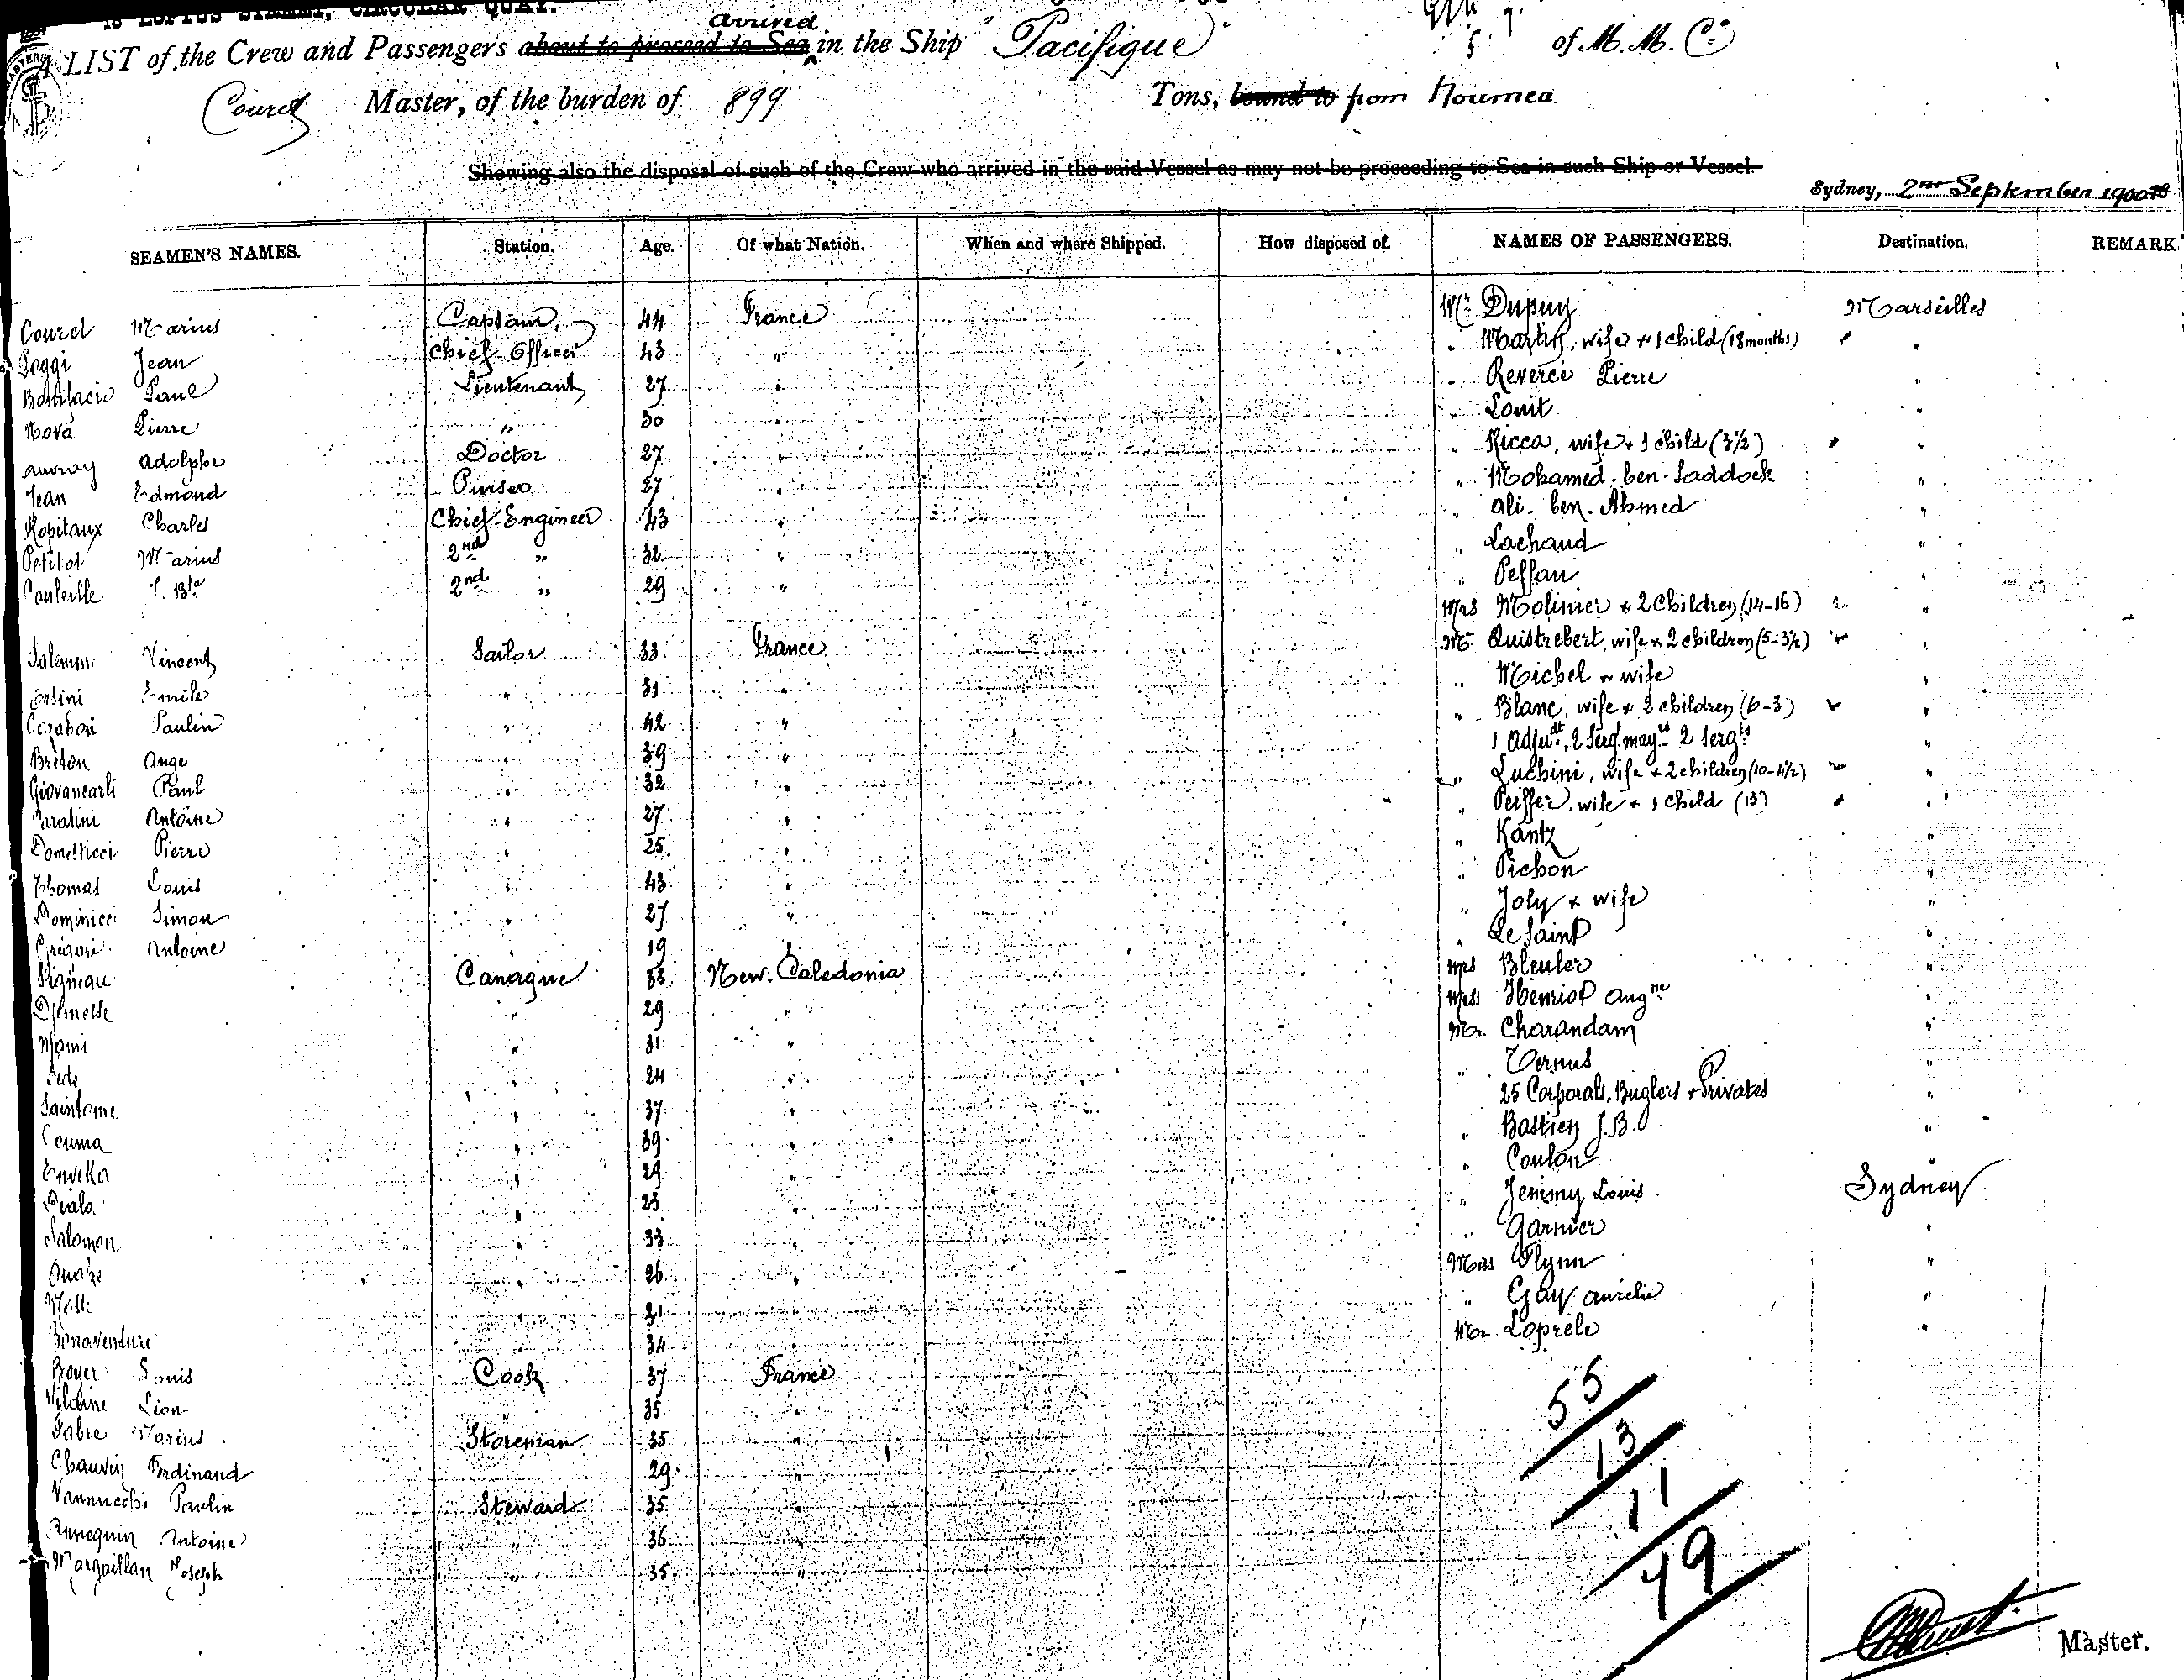 LOFTUS STREET, CIRCULAR QUAY.
A LIST of the Crew and Passengers about to proceed to Sea arrived in the Ship "Pacifique" of M. M. Co
Courel Master, of the burden of 899 Tons, bound to from Noumea
Showing also the disposal of such of the Crew who arrived in the said Vessel as may not be proceeding to Sea in such Ship or Vessel.
Sydney, 2nd September 1900
SEAMEN'S NAMES. Station. Age. Of what Nation. When and where Shipped. How disposed of. NAMES OF PASSENGERS. Destination. REMARK
Courel Marius Captain 44 France Mr Dupuy Marseilles
Poggi Jean Chief Officer 43 " " Martin, wife + 1 child (18 months) "
Bonifacio Paul Lieutenant 27 " " Revercé Pierre "
Nova Pierre " 30 " Louit "
Auvray Adolphe Doctor 27 " " Ricca, wife + 1 child (3½) "
Jean Edmond Purser 27 " " Mohamed. ben. Saddock "
Charles Chief Engineer 43 " Ali. ben. Ahmed "
Petitot Marius 2nd " 32 " " Lachaud "
2nd " 29 " " Peffau "
Mrs Molinier + 2 Children (14-16) "
Vincent Sailor 33 France Mr Quistrebert, wife + 2 children (5-3½) "
Orsini Emile " 31 " " Michel + wife "
Paulin " 42 " " Blanc, wife + 2 children (6-3) "
Breton Ange " 39 " 1 Adjudt, 2 Sergt may rs 2 Sergts "
Giovancarli Paul " 32 " " Luchini, wife + 2 children (10-4½) "
Antoine " 27 " " Peiffer, wife + 1 child (13) "
Domesticci Pierre " 25 " " Kantz "
Thomas Louis " 43 " " Pichon "
Dominicci Simon " 27 " " Joly + wife "
Grégori Antoine 19 " Le Saint "
Pigneau Canaque 33 New. Caledonia Mrs Bleuler "
" 29 " Mrs Henriot Augne "
" 31 " Mr Charandam "
" 24 " " Vernus "
Saintome " 37 " 25 Corporals, Buglers + Privates "
Couma " 39 " Bastien J.B. "
" 29 " " Coulon "
" 23 " " Jemmy Louis Sydney
Salomon " 33 " " Garnier "
" 26 " Mrs Flynn "
" 31 " " Gay Aurélie "
Bonaventure 34 Mr Loprele "
Boyer Louis Cook 37 France
Léon 35 "
Fabre Marius Storeman 35 "
Chauvin Ferdinand 29 "
Vannucchi Paulin Steward 35 "
Annequin Antoine " 36 "
Margaillan Joseph " 35 "
55
13
11
79
Master.